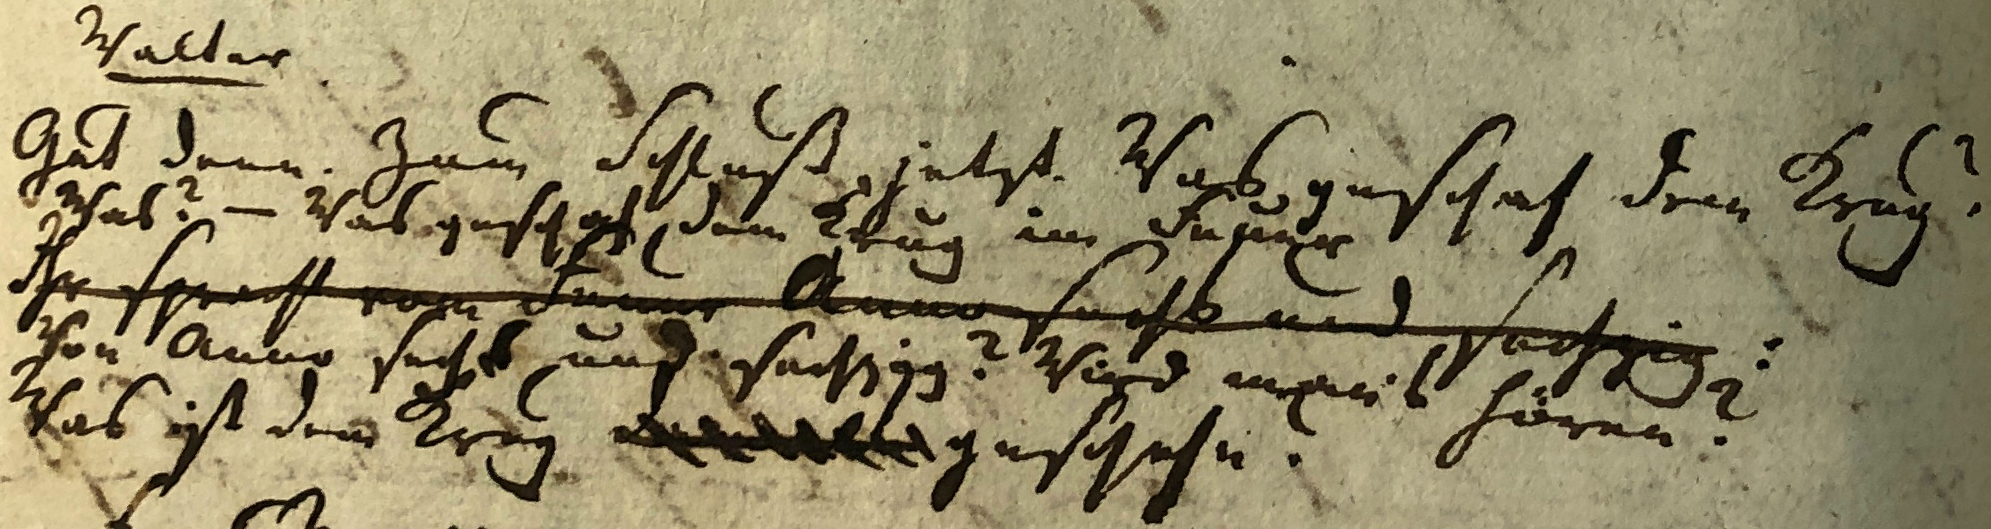 Walter
Gut denn. Zum Schluß jetzt. Was geschah dem Krug?
Was? – Was geschah dem Krug im Feuer
Ihr sprecht vom Feuer Anno sechs und sechszig:
Von Anno sechs und sechszig? Wird man's hören?
Was ist dem Krug geschehn?